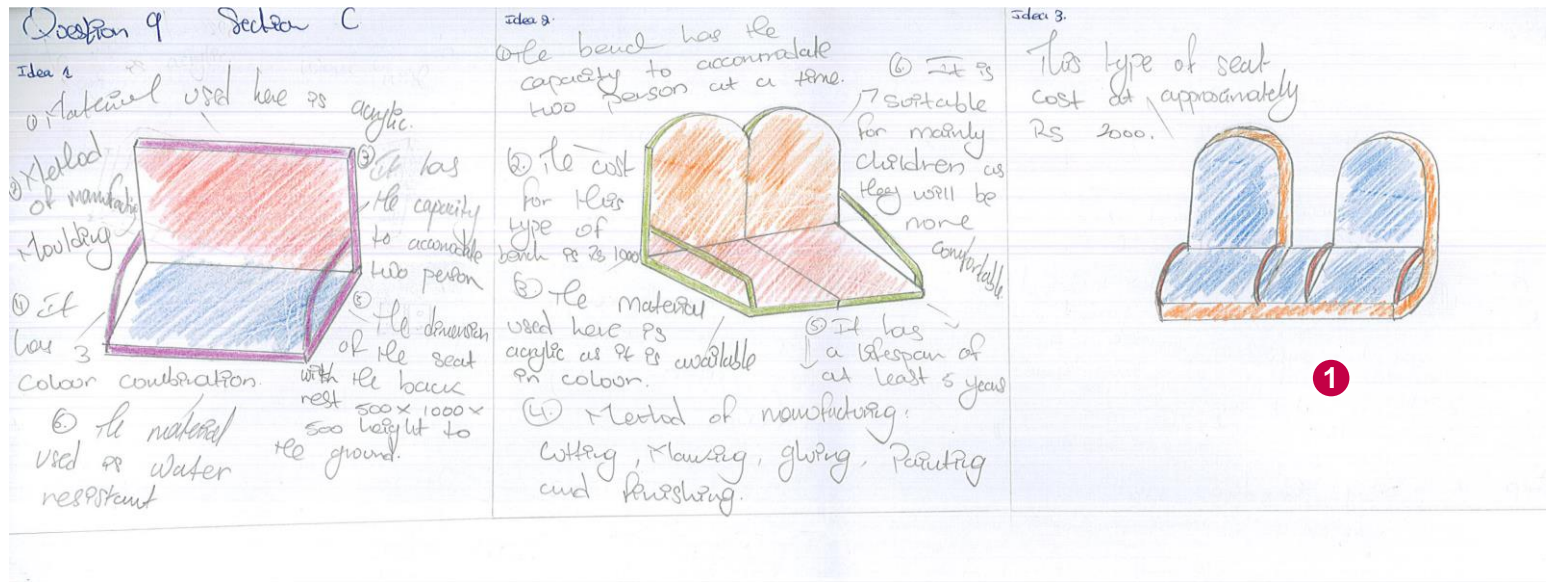 Question 9 Section C
Idea 1
① Material used here is
acrylic.
② Method
of manufacture
Moulding
③ It has
the capacity
to accomodate
two person
④ It
has 3
colour combination.
⑤ The dimension
of the seat
with the back
rest 500 x 1000 x
500 height to
the ground.
⑥ The material
used is water
resistant
Idea 2.
① The bench has the
capacity to accommodate
two person at a time.
② The cost
for this
type of
bench is Rs 1000
③ The material
used here is
acrylic as it is available
in colour.
④ Method of manufacturing:
cutting, Marking, gluing, Painting
and finishing.
⑤ It has
a lifespan of
at least 5 years
⑥ It is
suitable
for mainly
children as
they will be
more
comfortable.
Idea 3.
This type of seat
cost at approximately
Rs 2000.
1